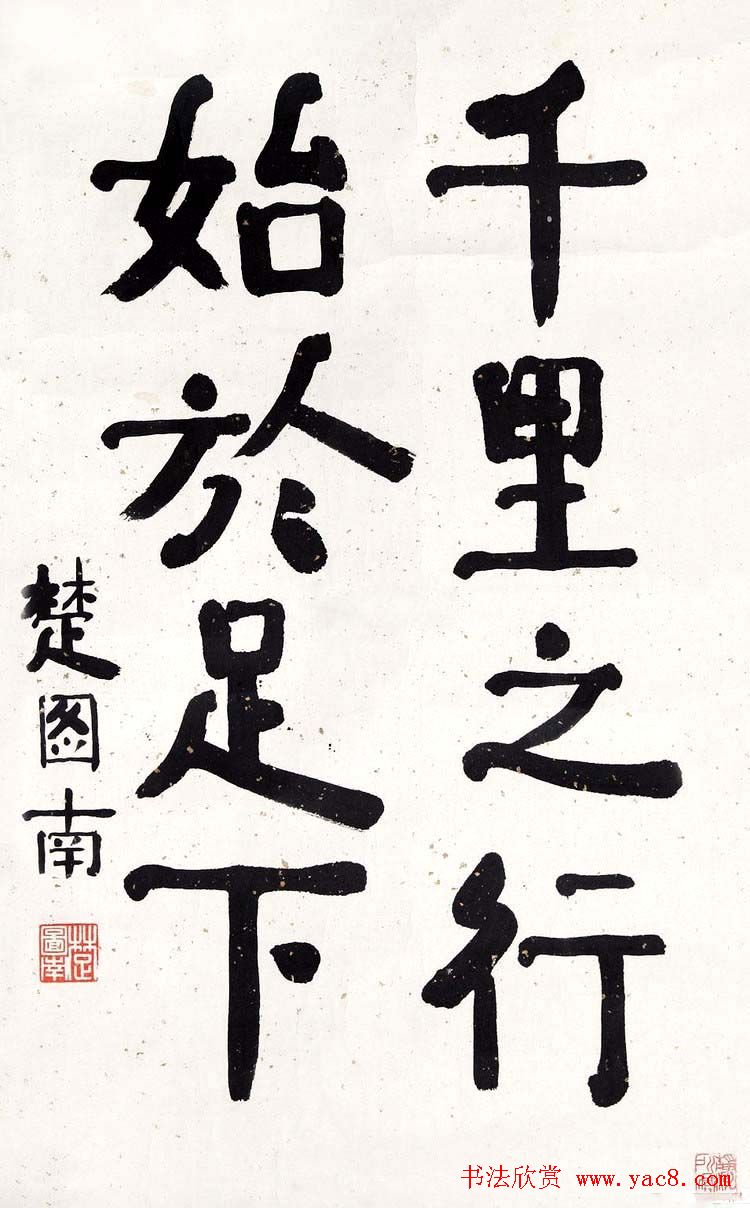 千里之行
始於足下
楚图南
楚圖南
书法欣赏 www.yac8.com